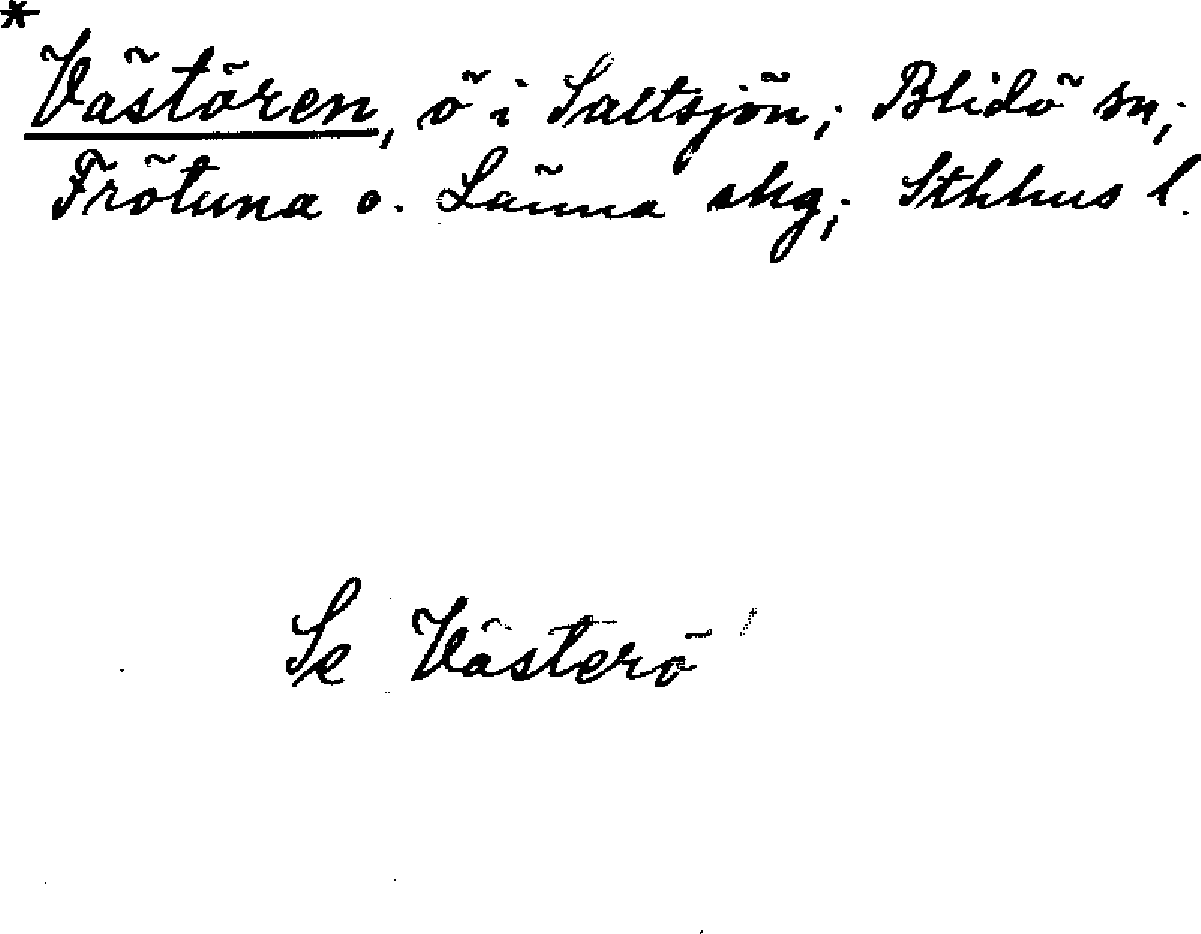 *
Västören, ö i Saltsjön; Blidö sn;
Frötuna o. Länna skg; Sthhus l.
Se Västerö